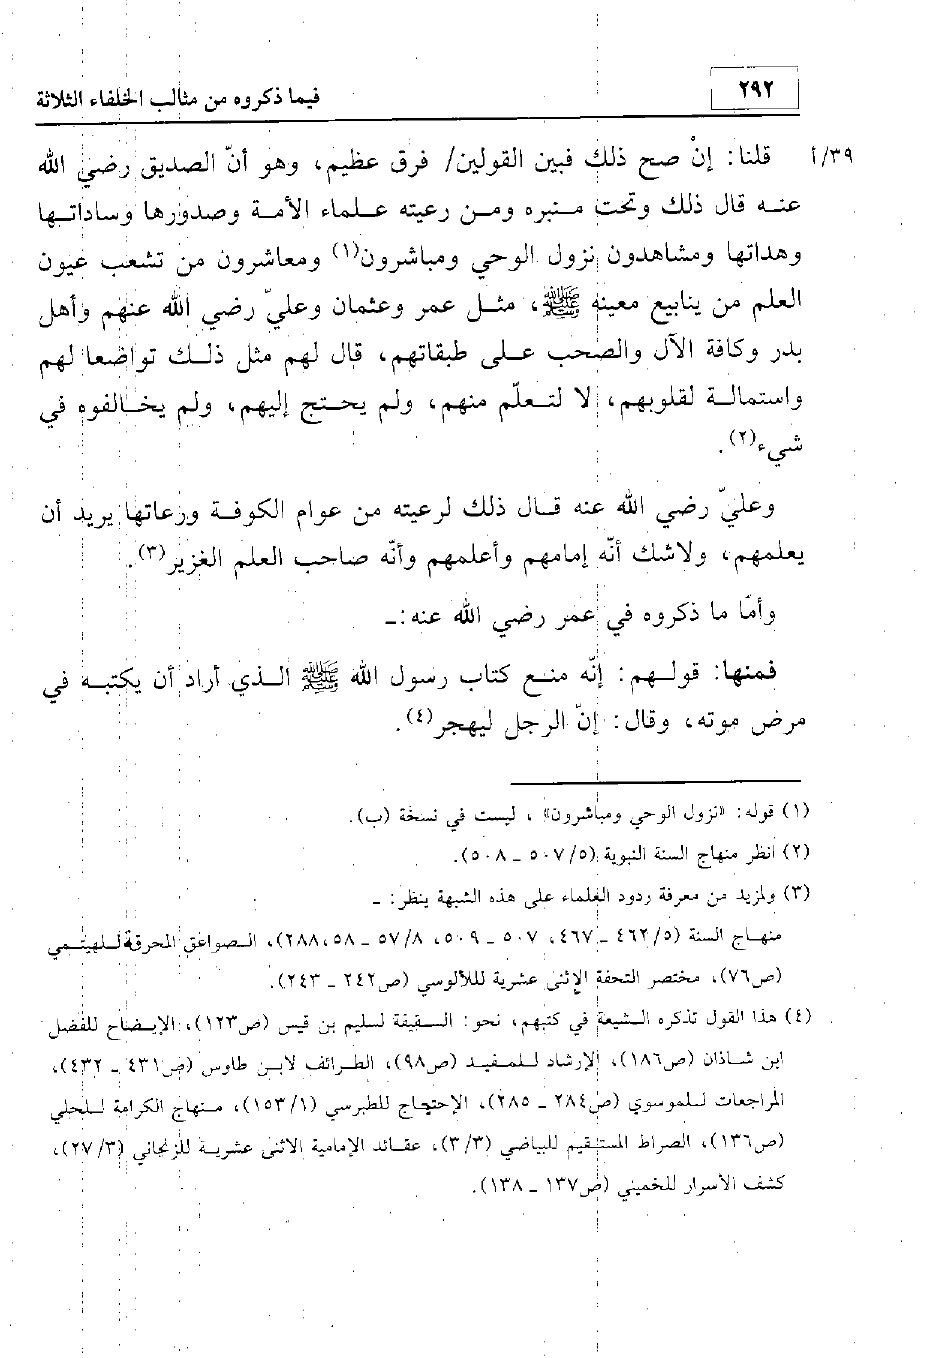 ٢٩٢ فيما ذكروه من مثالب الخلفاء الثلاثة
٣٩/أ قلنا: إنْ صح ذلك فبين القولين/ فرق عظيم، وهو أنّ الصديق رضي الله
عنه قال ذلك وتحت منبره ومن رعيته علماء الأمة وصدورها وساداتها
وهداتها ومشاهدون نزول الوحي ومباشرون(١) ومعاشرون من تشعب عيون
العلم من ينابيع معينه ﷺ، مثل عمر وعثمان وعليّ رضي الله عنهم وأهل
بدر وكافة الآل والصحب على طبقاتهم، قال لهم مثل ذلك تواضعا لهم
واستمالة لقلوبهم، لا لتعلّم منهم، ولم يحتج إليهم، ولم يخالفوه في
شيء(٢).
وعليّ رضي الله عنه قال ذلك لرعيته من عوام الكوفة ورعاتها يريد أن
يعلمهم، ولاشك أنّه إمامهم وأعلمهم وأنّه صاحب العلم الغزير(٣).
وأمّا ما ذكروه في عمر رضي الله عنه:ـ
فمنها: قولهم: إنّه منع كتاب رسول الله ﷺ الذي أراد أن يكتبه في
مرض موته، وقال: إنّ الرجل ليهجر(٤).
(١) قوله: «نزول الوحي ومباشرون» ، ليست في نسخة (ب).
(٢) أنظر منهاج السنة النبوية (٥/ ٥٠٧ ـ ٥٠٨).
(٣) ولمزيد من معرفة ردود العلماء على هذه الشبهة ينظر: ـ
منهاج السنة (٤٦٢/٥ ـ ٤٦٧، ٥٠٧ ـ ٥٠٩، ٥٧/٨ ـ ٢٨٨،٥٨)، الصواعق المحرقة للهيتمي
(ص٧٦)، مختصر التحفة الإثنى عشرية للآلوسي (ص٢٤٢ ـ ٢٤٣).
(٤) هذا القول تذكره الشيعة في كتبهم، نحو: السقيفة لسليم بن قيس (ص١٢٣)، الإيضاح للفضل
ابن شاذان (ص١٨٦)، الإرشاد للمفيد (ص٩٨)، الطرائف لابن طاوس (ص٤٣١ ـ ٤٣٢)،
المراجعات للموسوي (ص٢٨٤ ـ ٢٨٥)، الإحتجاج للطبرسي (١٥٣/١)، منهاج الكرامة للحلي
(ص١٣٦)، الصراط المستقيم للبياضي (٣/٣)، عقائد الإمامية الاثنى عشرية للزنجاني (٢٧/٣)،
كشف الأسرار للخميني (ص١٣٧ ـ ١٣٨).